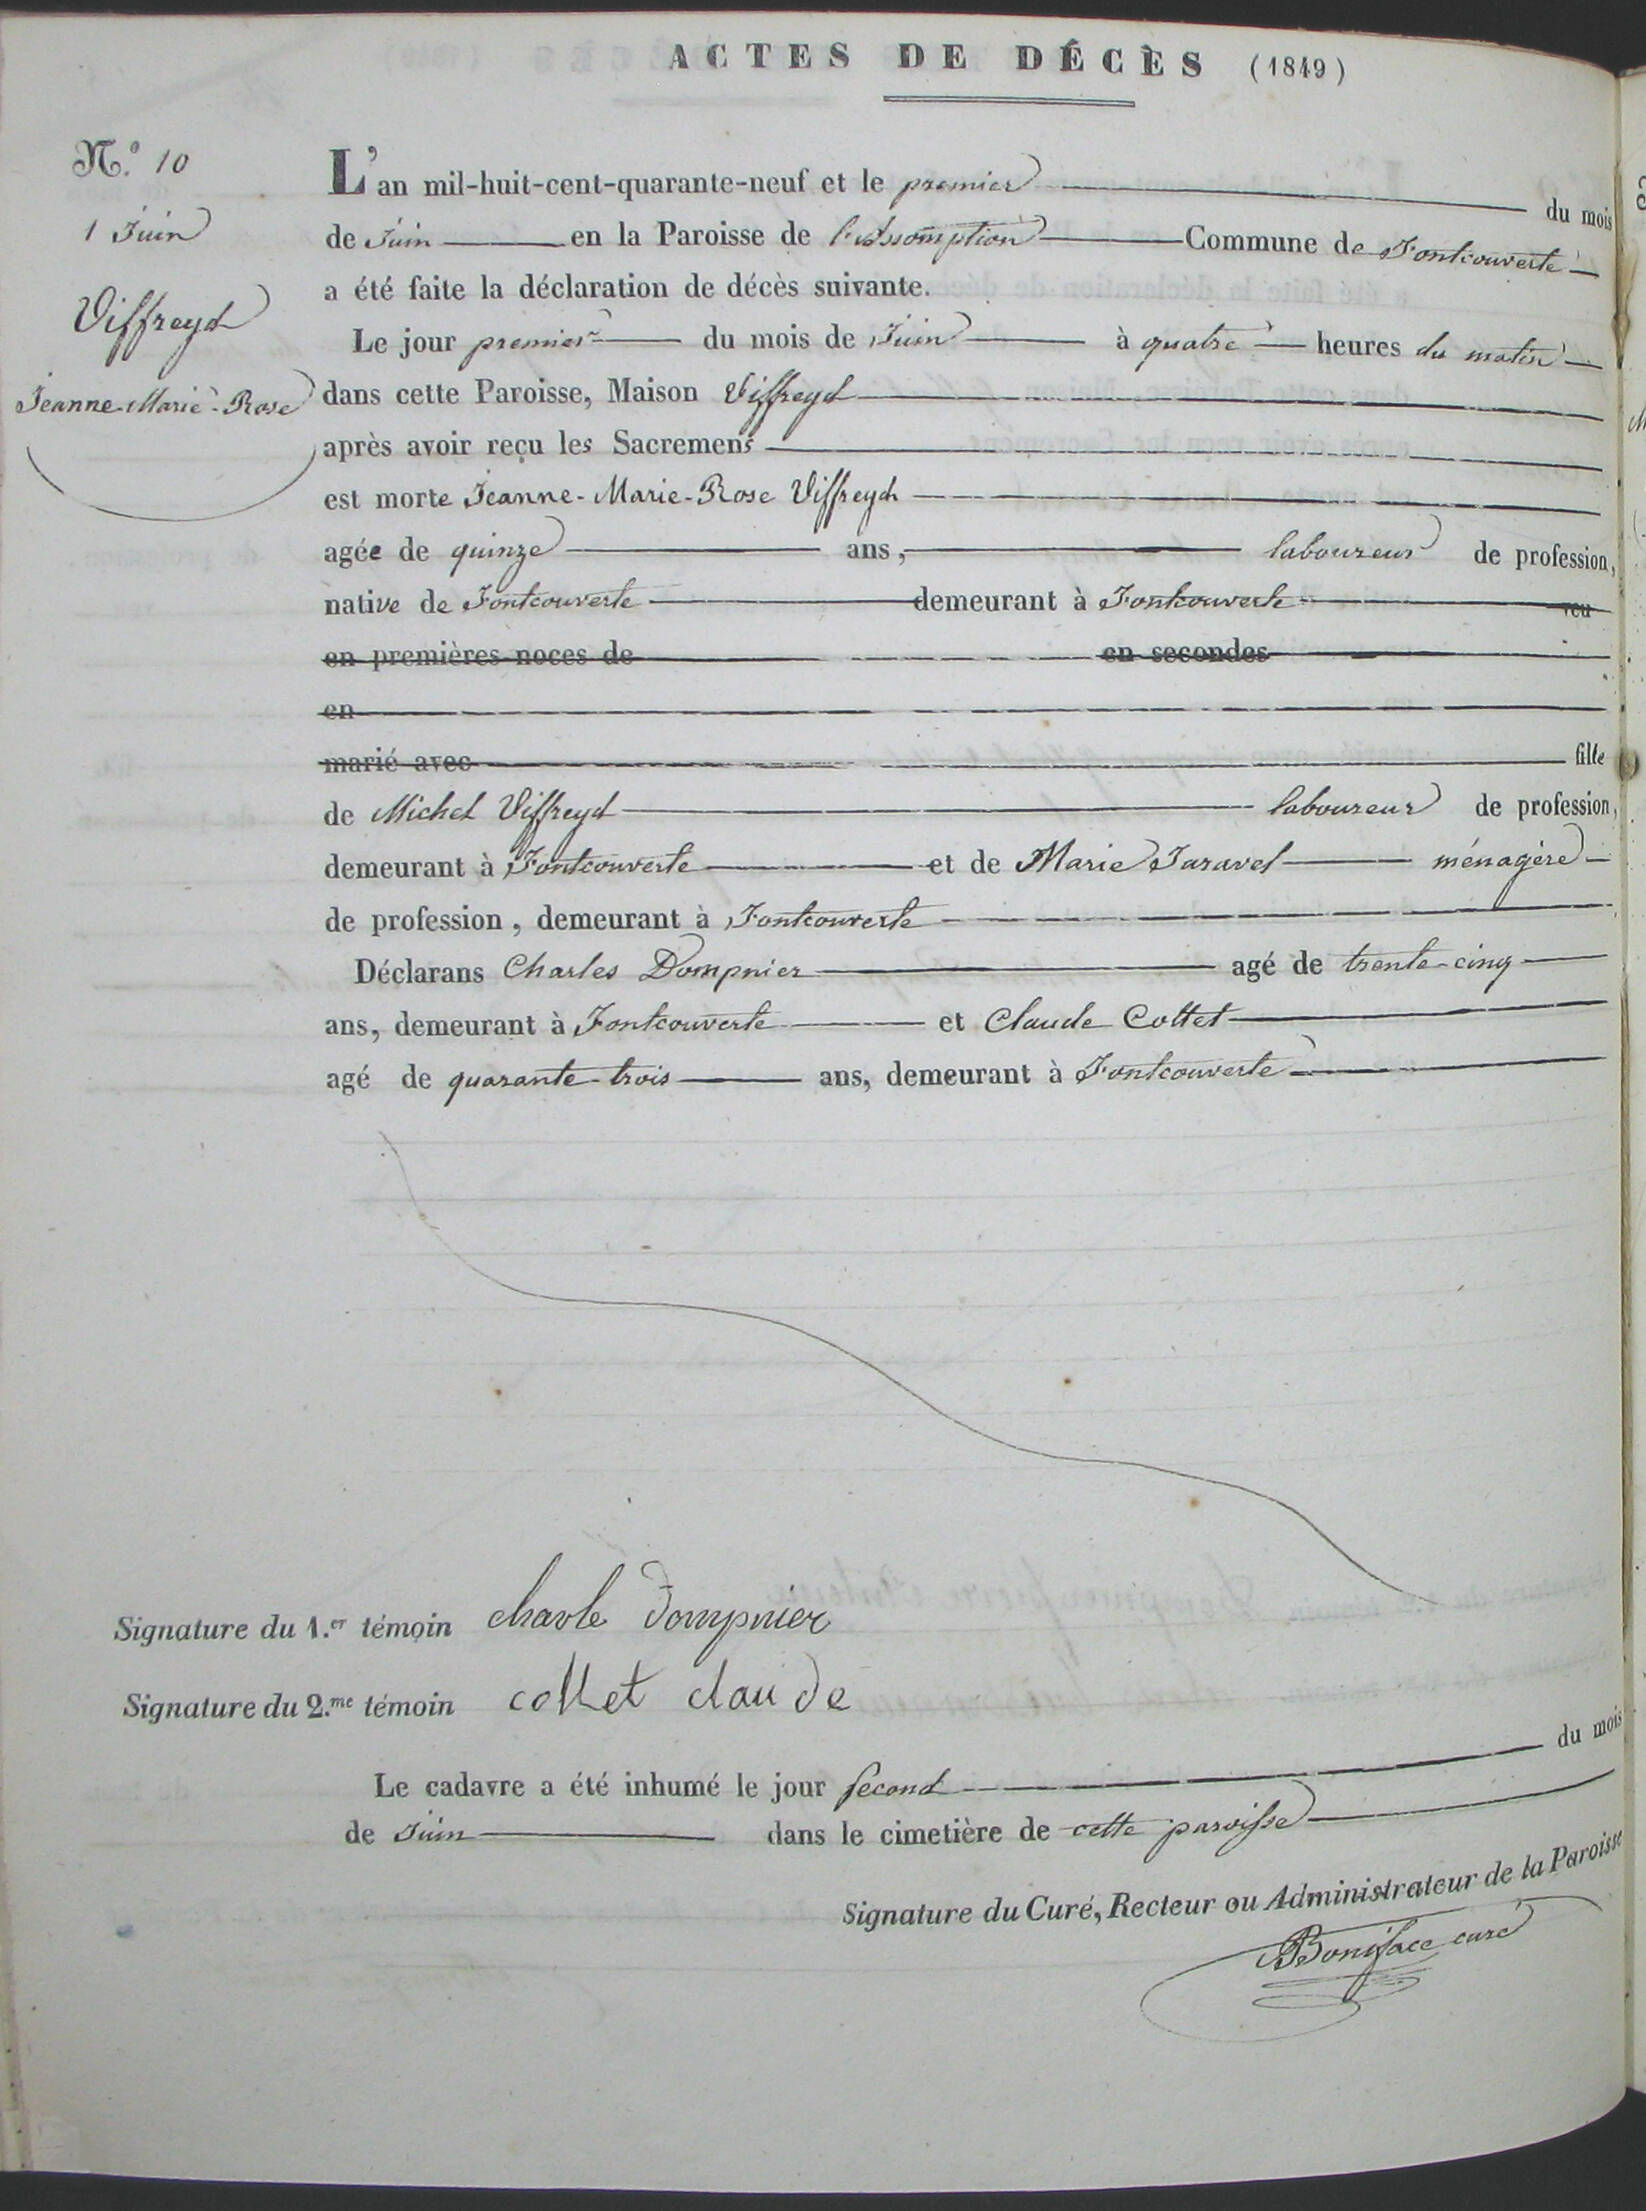 ACTES DE DÉCÈS (1849)
N.º 10
1 Juin
Viffreyd
Jeanne-Marie-Rose
L'an mil-huit-cent-quarante-neuf et le premier du mois
de Juin en la Paroisse de l'Assomption Commune de Fontcouverte
a été faite la déclaration de décès suivante.
Le jour premier du mois de Juin à quatre heures du matin
dans cette Paroisse, Maison Viffreyd
après avoir reçu les Sacremens
est morte Jeanne-Marie-Rose Viffreyd
agée de quinze ans, laboureur de profession,
native de Fontcouverte demeurant à Fontcouverte veu
en premières noces de en secondes
en
marié avec fille
de Michel Viffreyd laboureur de profession,
demeurant à Fontcouverte et de Marie Jaravel ménagère
de profession, demeurant à Fontcouverte
Déclarans Charles Dompnier agé de trente-cinq
ans, demeurant à Fontcouverte et Claude Collet
agé de quarante-trois ans, demeurant à Fontcouverte
Signature du 1.er témoin charle dompnier
Signature du 2.me témoin collet claude
Le cadavre a été inhumé le jour second du mois
de Juin dans le cimetière de cette paroisse
Signature du Curé, Recteur ou Administrateur de la Paroisse
Boniface curé